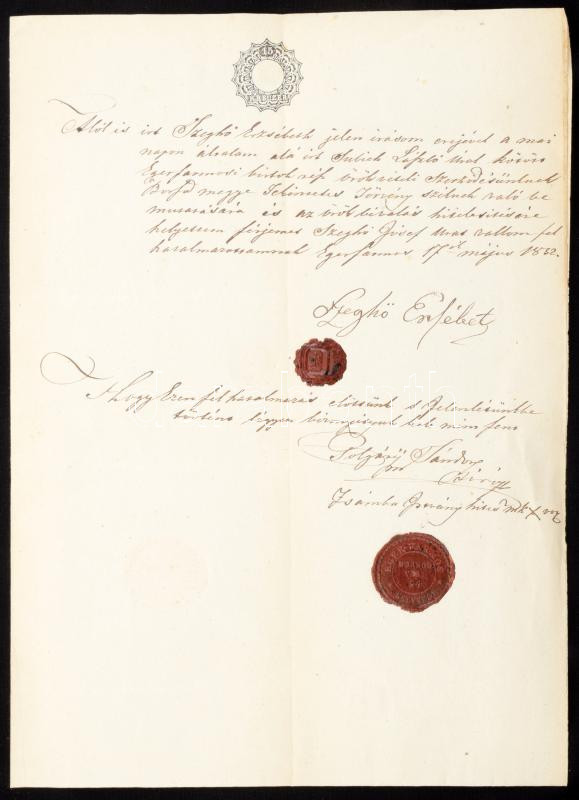 15
Alól is irt Szeghő Erzsébeth jelen irásom erejével a mai
napon általam alá irt Julich László Urat közös
Egerfarmosi birtok rész örök vételi Szerkodésünknek
Borsod megye Tekintetes Törvény széknek való be
mutatására és az örök bevalás hitelesitésére
helyettem férjemet Szeghő József Urat vallom fel
hatalmazottamnak Egerfarmos 17én május 1832.
Szeghő Ersébet
Hogy Ezen fel hatalmazás előttünk s Jelenlétünkbe
történt légyen bizonyitjuk kelt mint fent
Polgáry Sándor
Biró
Zsámba István hites mk X
EGER FARMOS
HELYSÉGE